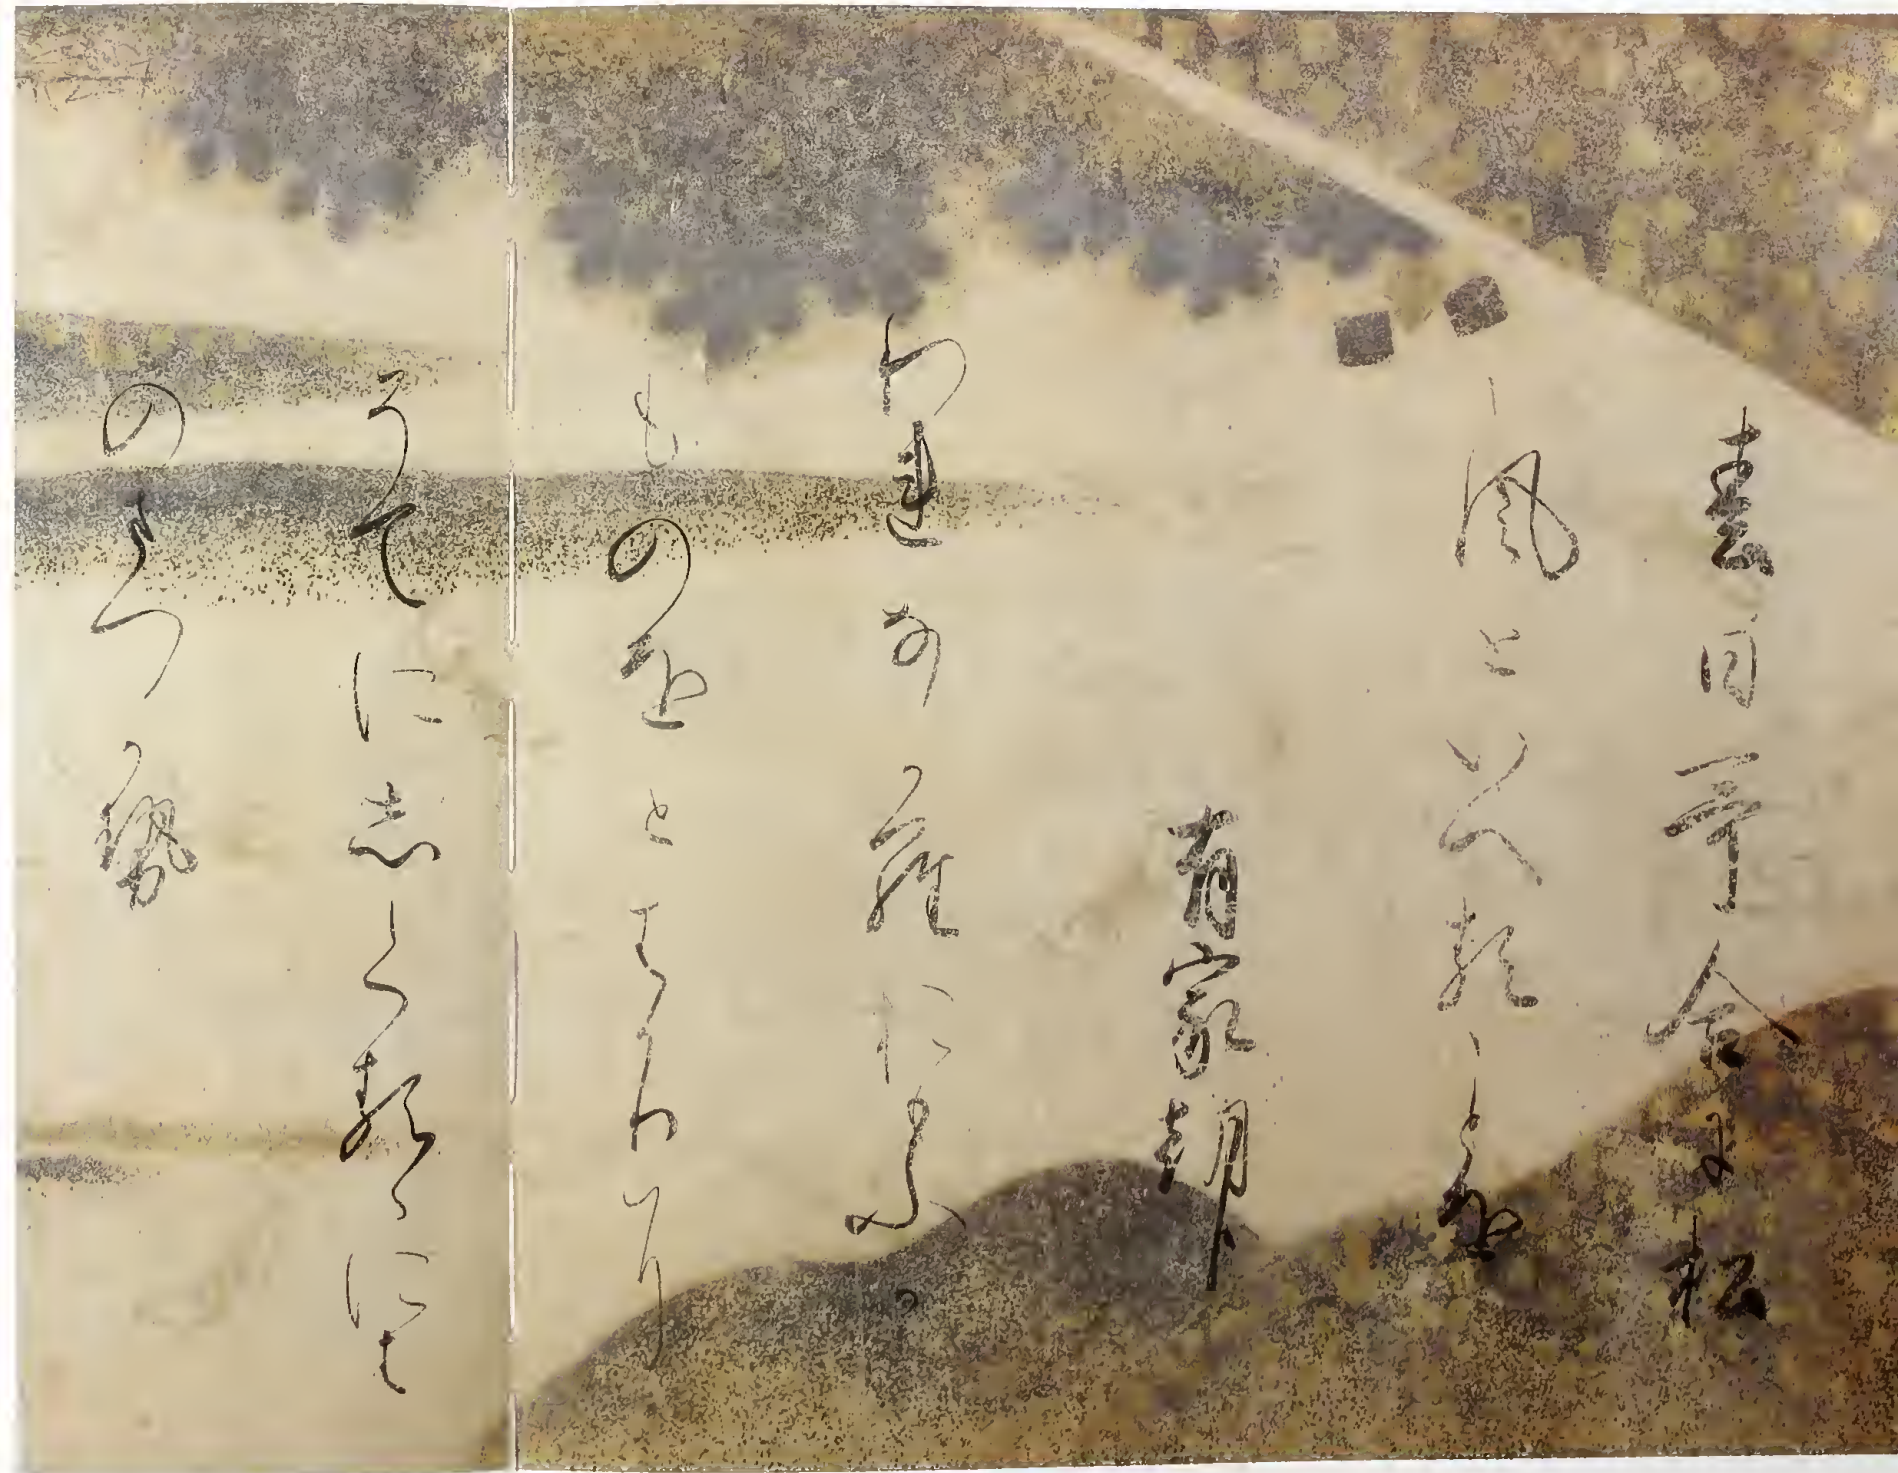 春日哥合に松
風といへることを
有家朝臣
われなからおもふか
ものをとはかりに
そてにしくるゝには
のまつかせ